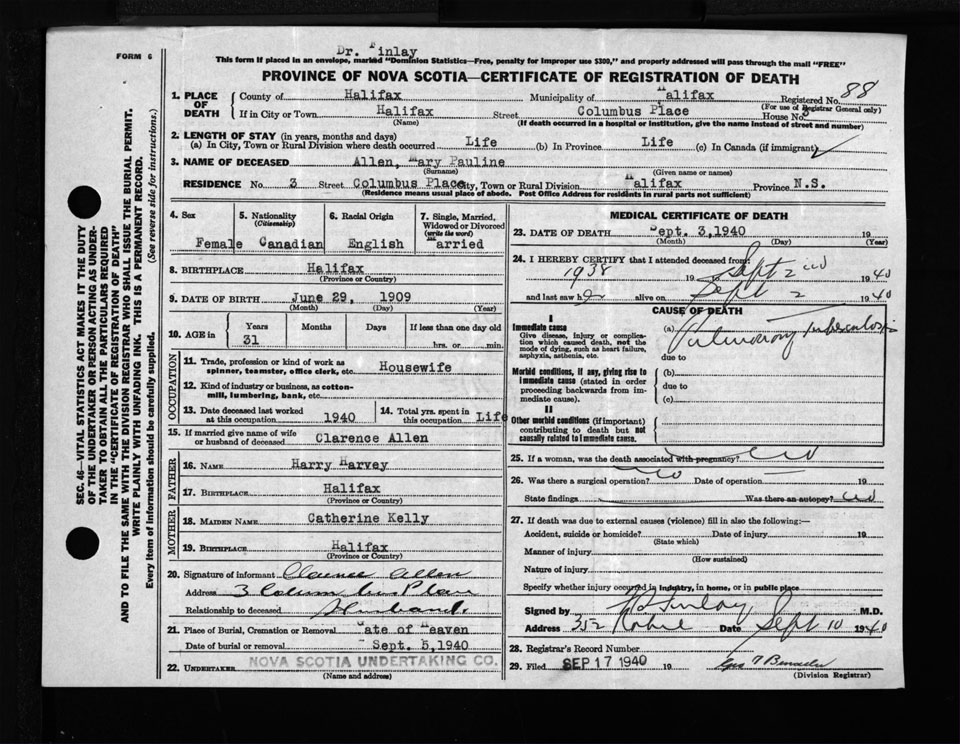 FORM 6
Dr. Finlay
This form if placed in an envelope, marked "Dominion Statistics—Free, penalty for improper use $300," and properly addressed will pass through the mail "FREE"
PROVINCE OF NOVA SCOTIA—CERTIFICATE OF REGISTRATION OF DEATH
1. PLACE OF DEATH County of Halifax Municipality of Halifax Registered No. 88
(For use of Registrar General only)
If in City or Town Halifax Street Columbus Place House No. 3
(Name) (If death occurred in a hospital or institution, give the name instead of street and number)
2. LENGTH OF STAY (in years, months and days)
(a) In City, Town or Rural Division where death occurred Life (b) In Province Life (c) In Canada (if immigrant)
3. NAME OF DECEASED Allen, Mary Pauline
(Surname) (Given name or names)
RESIDENCE No. 3 Street Columbus Place City, Town or Rural Division Halifax Province N.S.
(Residence means usual place of abode. Post Office Address for residents in rural parts not sufficient)
4. Sex 5. Nationality (Citizenship) 6. Racial Origin 7. Single, Married, Widowed or Divorced (write the word)
Female Canadian English Married
8. BIRTHPLACE Halifax
(Province or Country)
9. DATE OF BIRTH June 29, 1909
(Month) (Day) (Year)
10. AGE in Years Months Days If less than one day old
31 hrs. or min.
OCCUPATION
11. Trade, profession or kind of work as spinner, teamster, office clerk, etc. Housewife
12. Kind of industry or business, as cotton-mill, lumbering, bank, etc.
13. Date deceased last worked at this occupation 1940 14. Total yrs. spent in this occupation Life
15. If married give name of wife or husband of deceased Clarence Allen
FATHER
16. NAME Harry Harvey
17. BIRTHPLACE Halifax
(Province or Country)
MOTHER
18. MAIDEN NAME Catherine Kelly
19. BIRTHPLACE Halifax
(Province or Country)
20. Signature of informant Clarence Allen
Address 3 Columbus Place
Relationship to deceased Husband.
21. Place of Burial, Cremation or Removal Gate of Heaven
Date of burial or removal Sept. 5, 1940
22. UNDERTAKER NOVA SCOTIA UNDERTAKING CO.
(Name and address)
MEDICAL CERTIFICATE OF DEATH
23. DATE OF DEATH Sept. 3, 1940 19
(Month) (Day) (Year)
24. I HEREBY CERTIFY that I attended deceased from:
1938 19 to Sept 2nd 1940
and last saw her alive on Sept 2 1940
CAUSE OF DEATH
I
Immediate cause
Give disease, injury or complication which caused death, not the mode of dying, such as heart failure, asphyxia, asthenia, etc.
(a) Pulmonary Tuberculosis
due to
Morbid conditions, if any, giving rise to immediate cause (stated in order proceeding backwards from immediate cause).
(b)
due to
(c)
II
Other morbid conditions (if important) contributing to death but not causally related to immediate cause.
25. If a woman, was the death associated with pregnancy? No
26. Was there a surgical operation? No Date of operation 19
State findings Was there an autopsy? No
27. If death was due to external causes (violence) fill in also the following:—
Accident, suicide or homicide? Date of injury 19
(State which)
Manner of injury
(How sustained)
Nature of injury
Specify whether injury occurred in industry, in home, or in public place
Signed by Finlay M.D.
Address 352 Robie Date Sept 10 1940
28. Registrar's Record Number
29. Filed SEP 17 1940 19
(Division Registrar)
SEC. 46—VITAL STATISTICS ACT MAKES IT THE DUTY
OF THE UNDERTAKER OR PERSON ACTING AS UNDER-
TAKER TO OBTAIN ALL THE PARTICULARS REQUIRED
IN THE "CERTIFICATE OF REGISTRATION OF DEATH"
AND TO FILE THE SAME WITH THE DIVISION REGISTRAR WHO SHALL ISSUE THE BURIAL PERMIT.
WRITE PLAINLY WITH UNFADING INK. THIS IS A PERMANENT RECORD.
Every item of information should be carefully supplied. (See reverse side for instructions.)